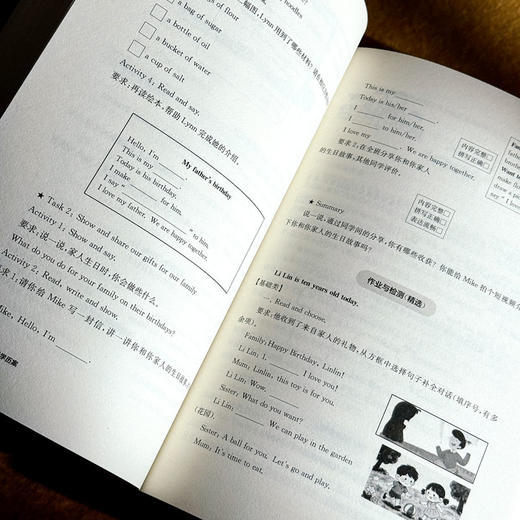 gs of flour
noodles
a bag of sugar
a bottle of oil
a bucket of water
a cup of salt
Activity 4: Read and say.
要求:再读绘本,帮助 Lynn 完成她的介绍。
My father's birthday
Hello, I'm
This is my
Today is his birthday.
I make for him.
I say " " to him.
I love my father. We are happy together.
★ Task 2: Show and share our gifts for our family.
Activity 1: Show and say.
要求:说一说,家人生日时,你会做些什么。
What do you do for your family on their birthdays?
Activity 2: Read, write and show.
要求1:请你给 Mike 写一封信,讲一讲你和你家人的生日故事
Mike, Hello, I'm
学历案
This is my
Today is his/her
I for him/her.
I to him/her.
I love my . We are happy together.
要求2:在全班分享你和你家人
的生日故事,其他同学评价。
内容完整□
拼写正确□
内容完整□
拼写正确□
表达流畅□
★ Summary
说一说,通过同学间的分享,你有哪些收获?你能给 Mike 拍个短视频
下你和你家人的生日故事吗?
作业与检测(精选)
Li Lin is ten years old today.
【基础类】
一、Read and choose.
要求:他收到了来自家人的礼物,从方框中选择句子补全对话(填序号,有多
余项)。
Family: Happy Birthday, Linlin!
Li Lin: 1. I love you!
Mum: Linlin, this toy is for you.
Li Lin: Wow,
Sister: What do you want?
Li Lin: We can play in the garden
(花园).
Sister: A ball for you. Let's go and play.
Mum: It's time to eat.